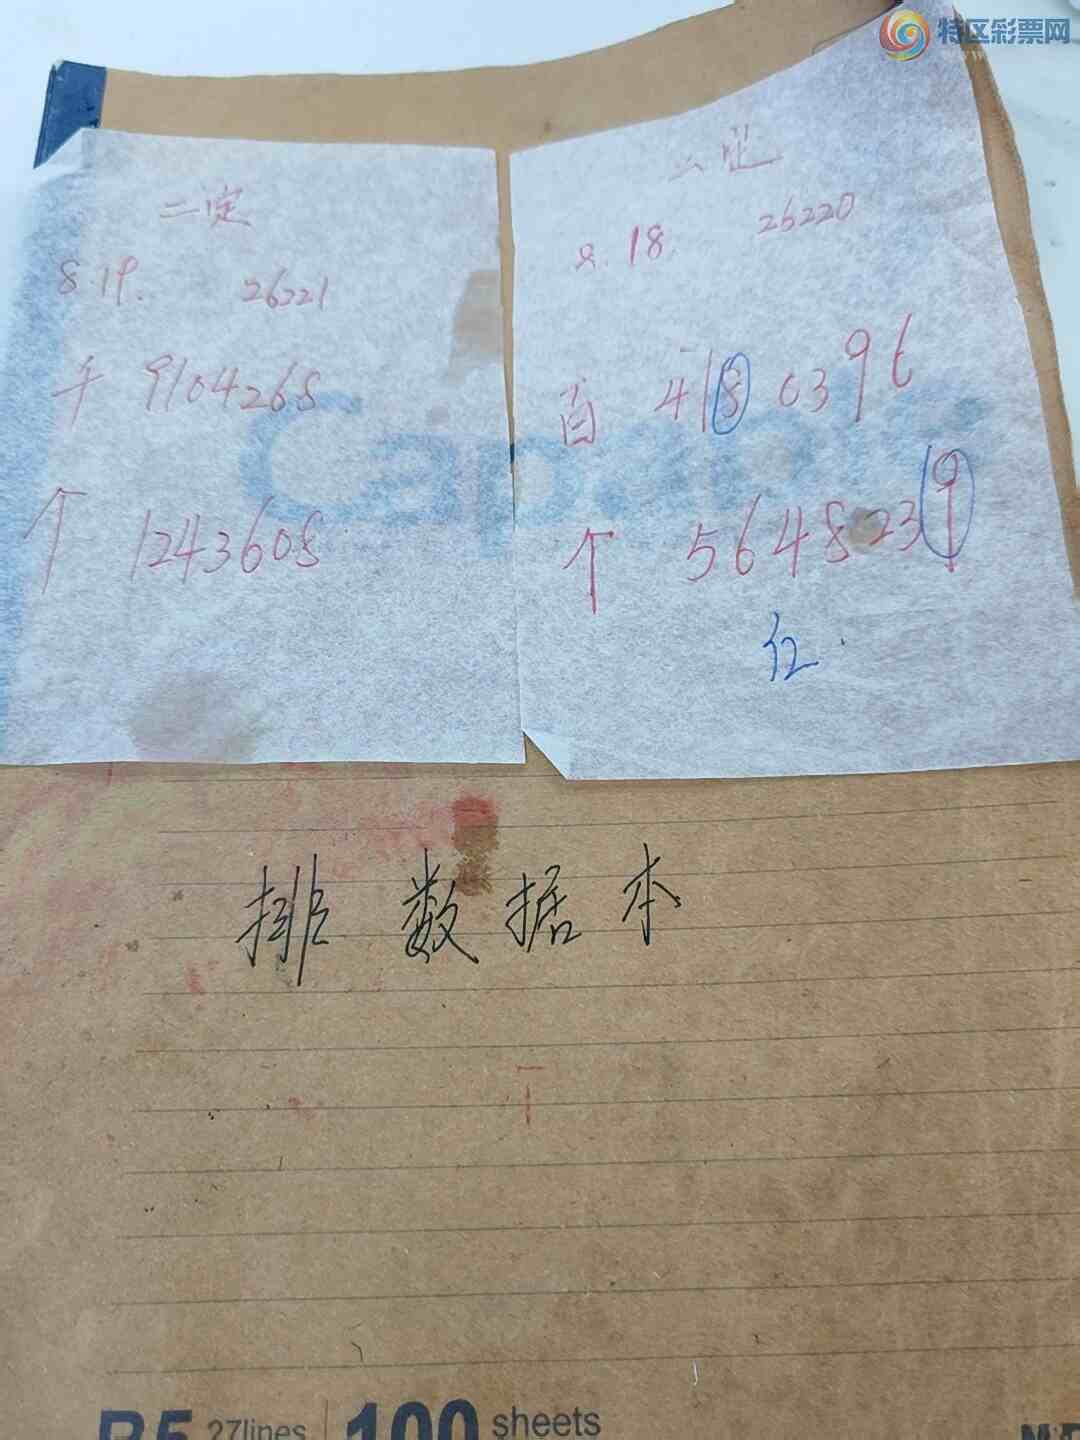 特区彩票网
二定
8.19. 26221
千 9104268
个 1243608
二定
8.18. 26220
百 4180396
个 5648239
红.
Capable
排数据本
B5 27lines 100 sheets